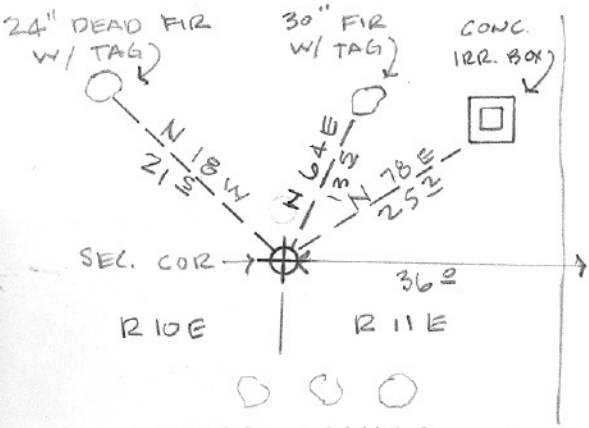 24" DEAD FIR
W/ TAG
30" FIR
W/ TAG
CONC.
IRR. BOX
N 18 W
21 5
N 64 E
13 5
N 78 E
25 2
SEC. COR
36 0
R 10 E
R 11 E